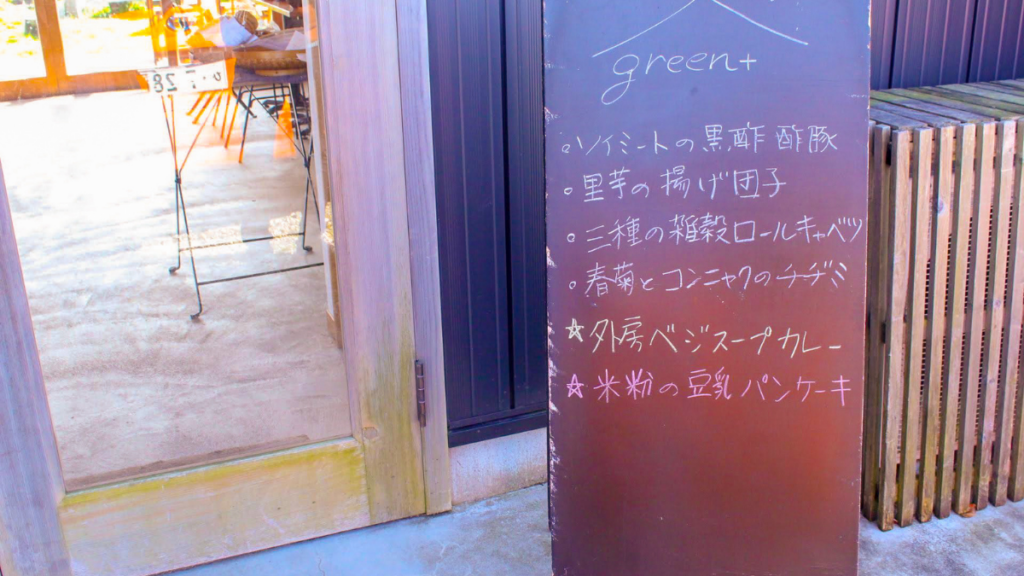 green+
。ソイミートの黒酢酢豚
。里芋の揚げ団子
。三種の雑穀ロールキャベツ
。春菊とコンニャクのチヂミ
☆外房ベジスープカレー
☆米粉の豆乳パンケーキ